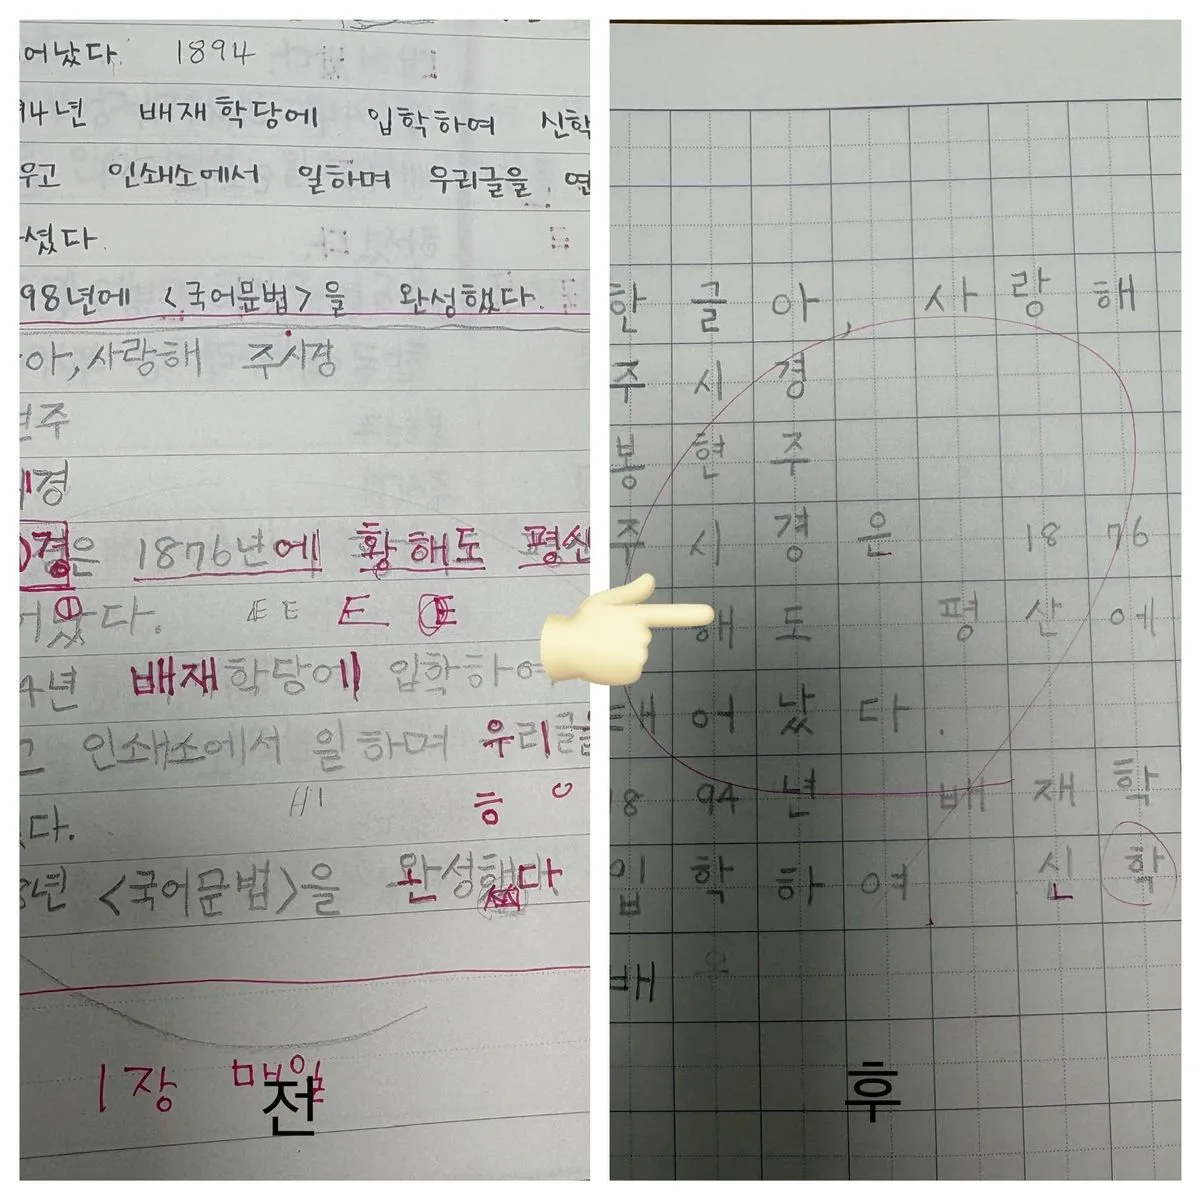 어났다. 1894
94년 배재학당에 입학하여 신학
우고 인쇄소에서 일하며 우리글을 연
셨다.
98년에 <국어문법>을 완성했다.
아, 사랑해 주시경
현주
경
경은 1876년에 황해도 평산
어났다. E E E E
4년 배재학당에 입학하여
고 인쇄소에서 일하며 우리글을
다. ㅐ 승 ㅇ
8년 <국어문법>을 완성했다
1장 매일
전
한글아, 사랑해
주시경
봉현주
주시경은 1876
해도 평산에
태어났다.
1894년 배재학
입학하여 신학
배우
후